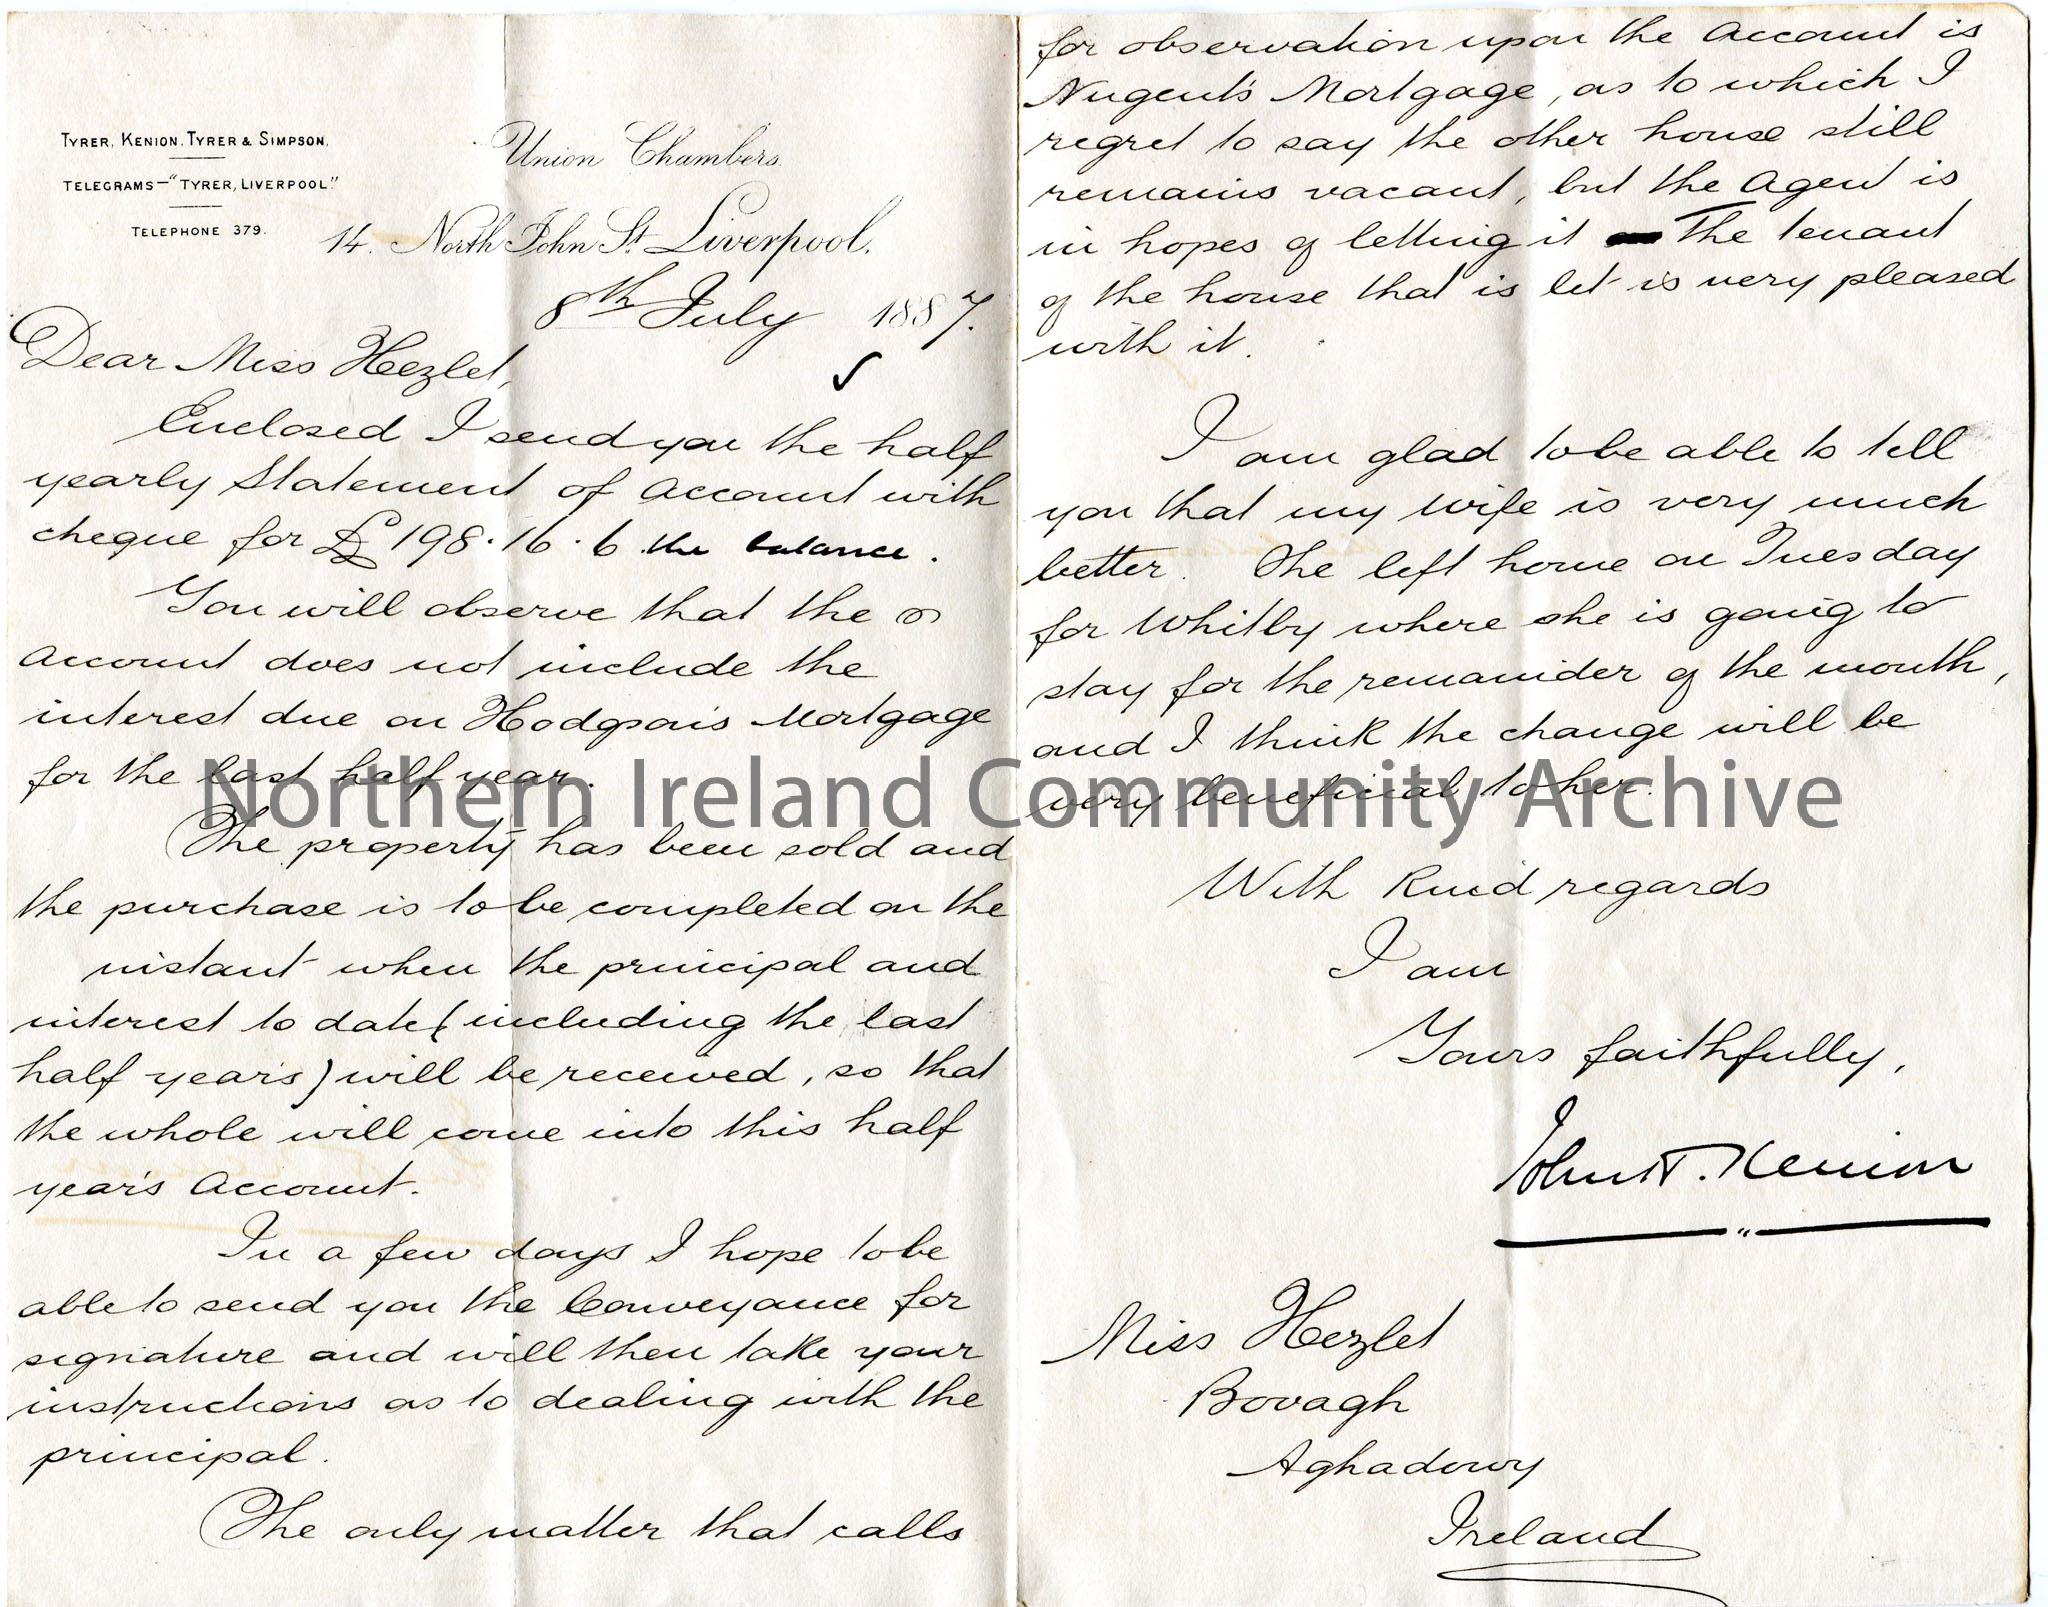 TYRER, KENION, TYRER & SIMPSON.
TELEGRAMS—"TYRER, LIVERPOOL."
TELEPHONE 379.
Union Chambers.
14. North John St. Liverpool.
8th July 1887.
Dear Miss Hezlet,
Enclosed I send you the half
yearly Statement of Account with
cheque for £198.16.6 the balance.
You will observe that the
Account does not include the
interest due on Hodgson's Mortgage
for the last half year.
The property has been sold and
the purchase is to be completed on the
instant when the principal and
interest to date (including the last
half year's) will be received, so that
the whole will come into this half
year's Account.
In a few days I hope to be
able to send you the Conveyance for
signature and will then take your
instructions as to dealing with the
principal.
The only matter that calls
for observation upon the Account is
Nugent's Mortgage, as to which I
regret to say the other house still
remains vacant, but the Agent is
in hopes of letting it The tenant
of the house that is let is very pleased
with it.
I am glad to be able to tell
you that my wife is very much
better. She left home on Tuesday
for Whitby where she is going to
stay for the remainder of the month,
and I think the change will be
very beneficial to her.
With kind regards
I am
Yours faithfully,
John H. Kenion
Miss Hezlet
Bovagh
Aghadowy
Ireland
Northern Ireland Community Archive